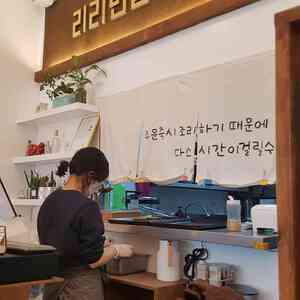 리리
주문즉시 조리하기 때문에
다소 시간이 걸릴수